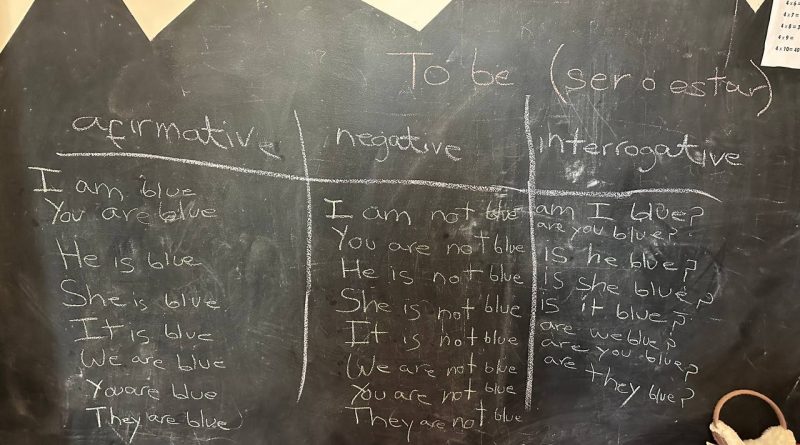 4 x 6 =
4 x 7 =
4 x 8 = 3
4 x 9 =
4 x 10 = 40
To be (ser o estar)
afirmative
negative
interrogative
I am blue
You are blue
He is blue
She is blue
It is blue
We are blue
You are blue
They are blue
I am not blue
You are not blue
He is not blue
She is not blue
It is not blue
We are not blue
You are not blue
They are not blue
am I blue?
are you blue?
is he blue?
is she blue?
is it blue?
are we blue?
are you blue?
are they blue?